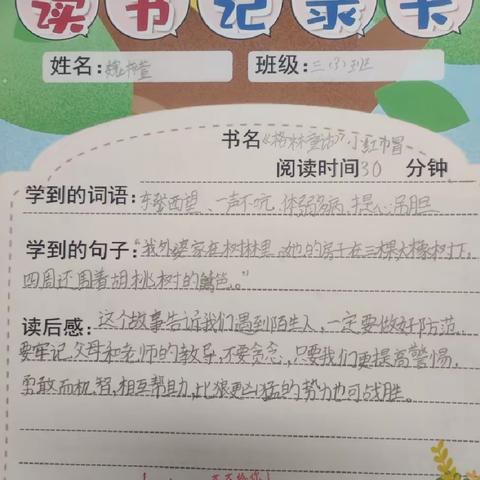 读书记录卡
姓名：魏梓萱 班级：三（3）班
书名《格林童话》小红帽
阅读时间30 分钟
学到的词语：东张西望、一声不吭、体弱多病、提心吊胆
学到的句子：“我外婆家在树林里，她的房子在三棵大橡树下，
四周还围着胡桃树的篱笆。”
读后感：这个故事告诉我们遇到陌生人，一定要做好防范，
要牢记父母和老师的教导，不要贪念，只要我们更提高警惕，
勇敢而机智，相互帮助，比狼更凶猛的势力也可战胜。